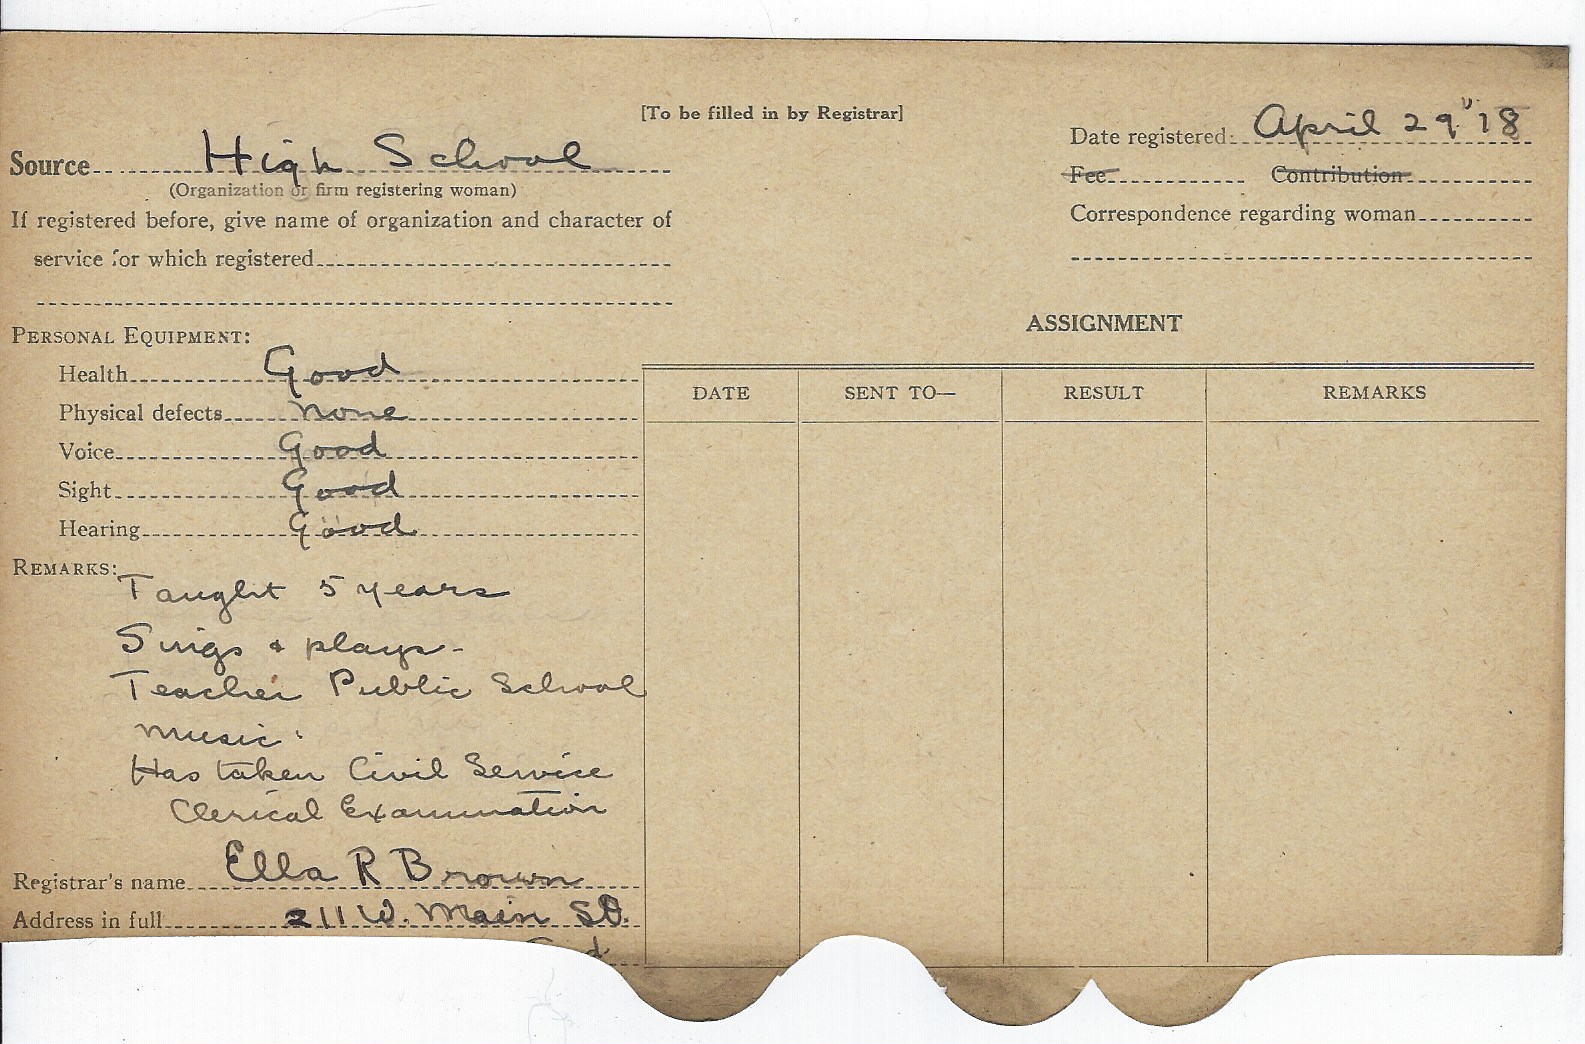 [To be filled in by Registrar]
Source High School
(Organization or firm registering woman)
If registered before, give name of organization and character of
service for which registered
Date registered April 29" 18
Fee Contribution
Correspondence regarding woman
PERSONAL EQUIPMENT:
Health Good
Physical defects none
Voice Good
Sight Good
Hearing Good
REMARKS:
Taught 5 years
Sings & plays -
Teacher Public School
music.
Has taken Civil Service
Clerical Examination
Registrar's name Ella R Brown
Address in full 211 W. Main St.
ASSIGNMENT
DATE SENT TO— RESULT REMARKS